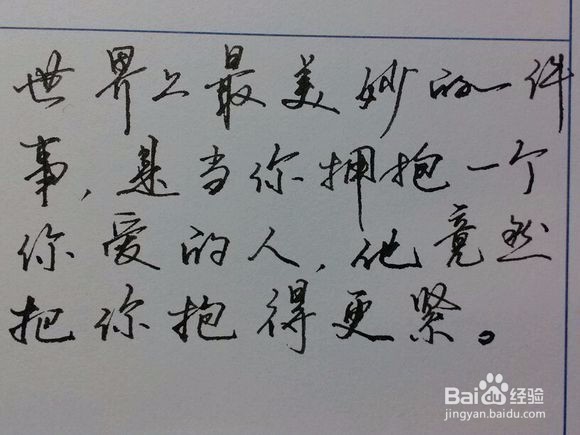 世界上最美妙的一件
事,是当你拥抱一个
你爱的人,他竟然
把你抱得更紧。
Baidu经验
jingyan.baidu.com